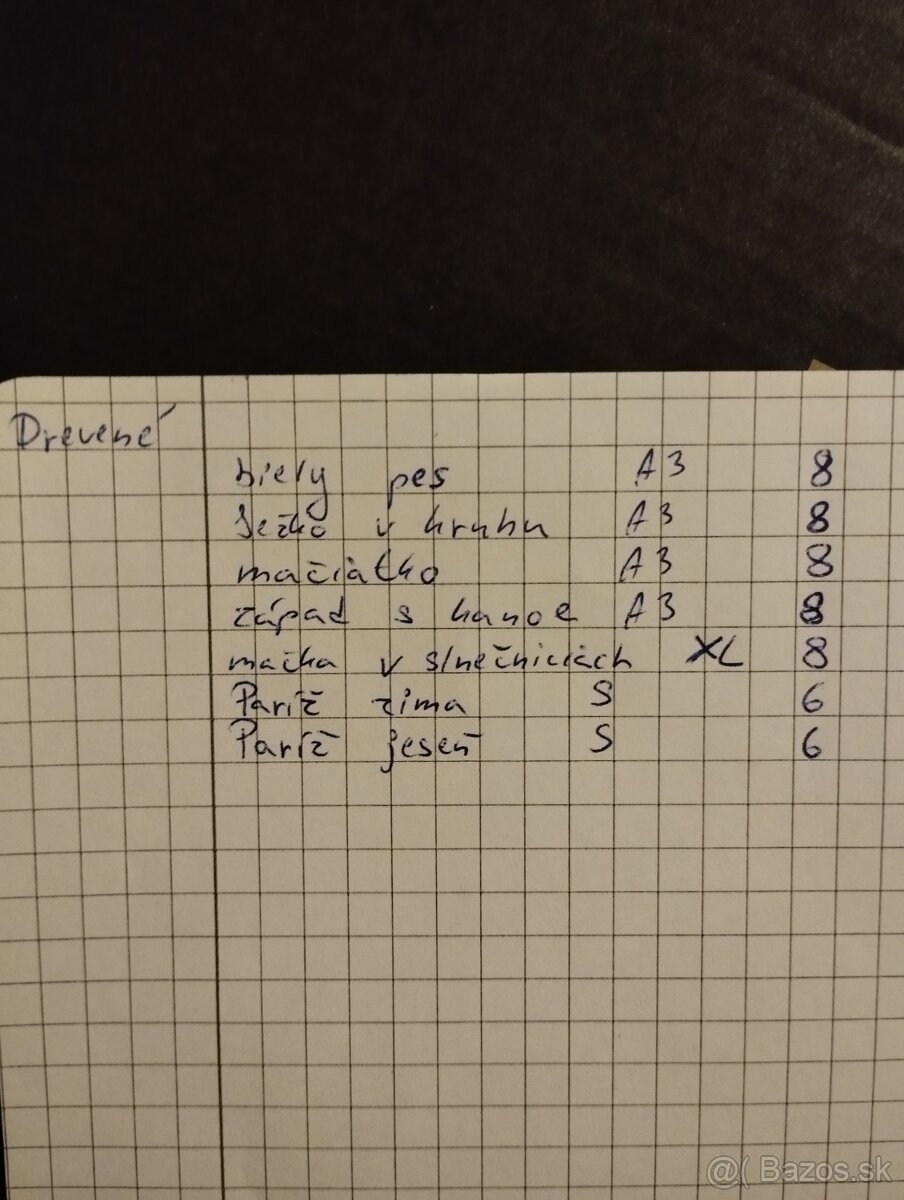 Drevené
biely pes A3 8
Ježko v kruhu A3 8
mačiatko A3 8
západ s kanoe A3 8
mačka v slnečniciach XL 8
Paríž zima S 6
Paríž jeseň S 6
@( Bazos.sk